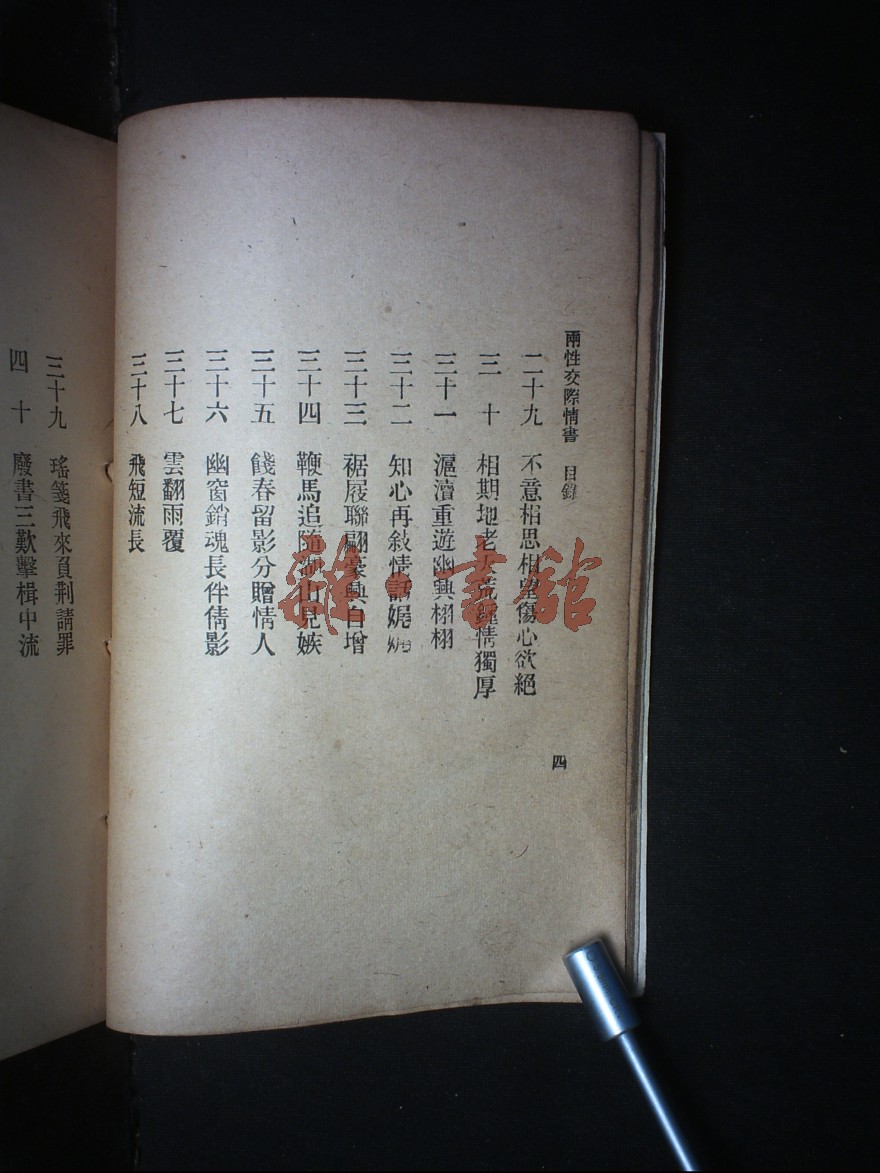 兩性交際情書 目錄
二十九 不意相思相望傷心欲絕
三十 相期地老天荒鍾情獨厚
三十一 滬瀆重遊幽興栩栩
三十二 知心再敍情話娓娓
三十三 裾履聯翩豪興自增
三十四 鞭馬追隨湖山見嫉
三十五 餞春留影分贈情人
三十六 幽窗銷魂長伴倩影
三十七 雲翻雨覆
三十八 飛短流長
四
三十九 瑤箋飛來負荆請罪
四十 廢書三歎擊楫中流
雜·書館